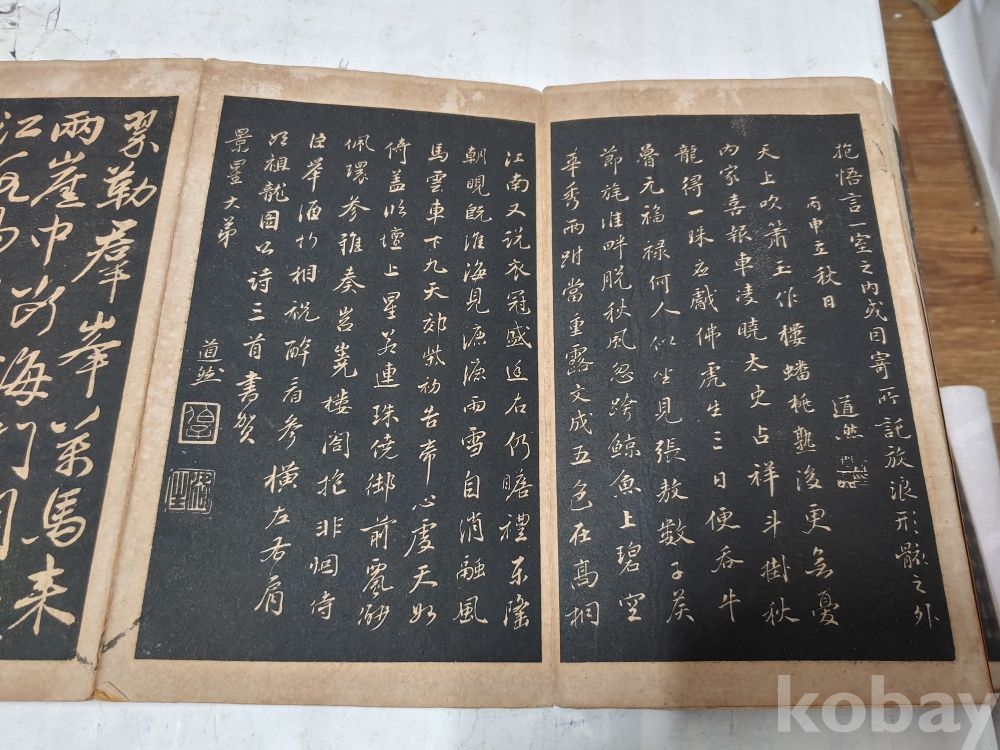 抱悟言一室之內或因寄所託放浪形骸之外
丙申立秋日 道然
天上吹簫玉作樓蟠桃熟後更無憂
內家喜報車凌曉太史占祥斗掛秋
龍得一珠應戲佛虎生三日便吞牛
魯元福祿何人似坐見張敖數子侯
節旄淮畔脫秋風忽跨鯨魚上碧空
華秀兩跗當重露文成五色在高桐
江南又說衣冠盛廷右仍瞻禮樂隆
朝晛旣淮海見
雨雪自消融風
馬雲車下九天郊紫初告帝心虔天如
倚蓋臨壇上星若連珠繞御前鳳
佩環參雅奏岧嶢樓閣抱非烟侍
臣舉酒
相祝醉看參橫左右肩
祖龍圖公詩三首書贺
景星大弟
道然
翠勒群峯萬馬來
兩崖中
海門開
江